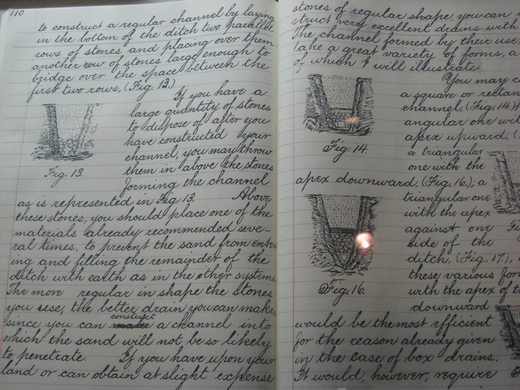 110
to construct a regular channel by laying
in the bottom of the ditch two parallel
rows of stones, and placing over them
another row of stones large enough to
bridge over the space between the
first two rows, (Fig. 13.)
If you have a
large quantity of stones
to dispose of after you
have constructed your
channel, you may throw
them in above the stones
forming the channel
Fig. 13.
as is represented in Fig. 13. Above
these stones, you should place one of the
materials already recommended seve-
ral times, to prevent the sand from enter-
ing and filling the remainder of the
ditch with earth as in the other systems
The more regular in shape the stones
you use, the better drain you can make
since you can construct a channel into
which the sand will not be so likely
to penetrate. If you have upon your
land or can obtain at slight expense
stones of regular shape, you can
struct very excellent drains with
The channel formed by their use
take a great variety of forms, a
of which I will illustrate
You may c
a square or rectan
channel, (Fig. 14.)
angular one wi
apex upward, (
a triangular
one with the
Fig. 14.
apex downward, (Fig. 16.), a
triangular one
with the apex
against one
side of the
ditch, (Fig. 17.),
these various for
with the apex of t
downward
Fig. 16.
would be the most efficient
for the reason already given
in the case of box drains.
It would, however, require